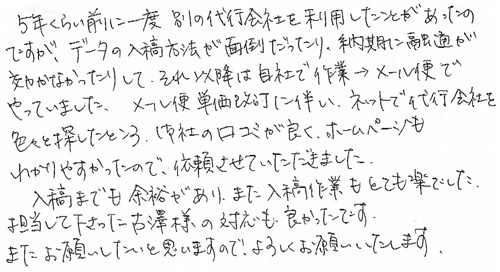 5年くらい前に一度 別の代行会社を利用したことがあったの
ですが、データの入稿方法が面倒だったり、納期に融通が
効かなかったりして、それ以降は自社で作業→メール便で
やっていました。 メール便単価改訂に伴い、ネットで代行会社を
色々と探したところ、御社の口コミが良く、ホームページも
わかりやすかったので、依頼させていただきました。
入稿までも余裕があり、また入稿作業もとても楽でした。
担当して下さった古澤様の対応も良かったです。
またお願いしたいと思いますので、よろしくお願いいたします。